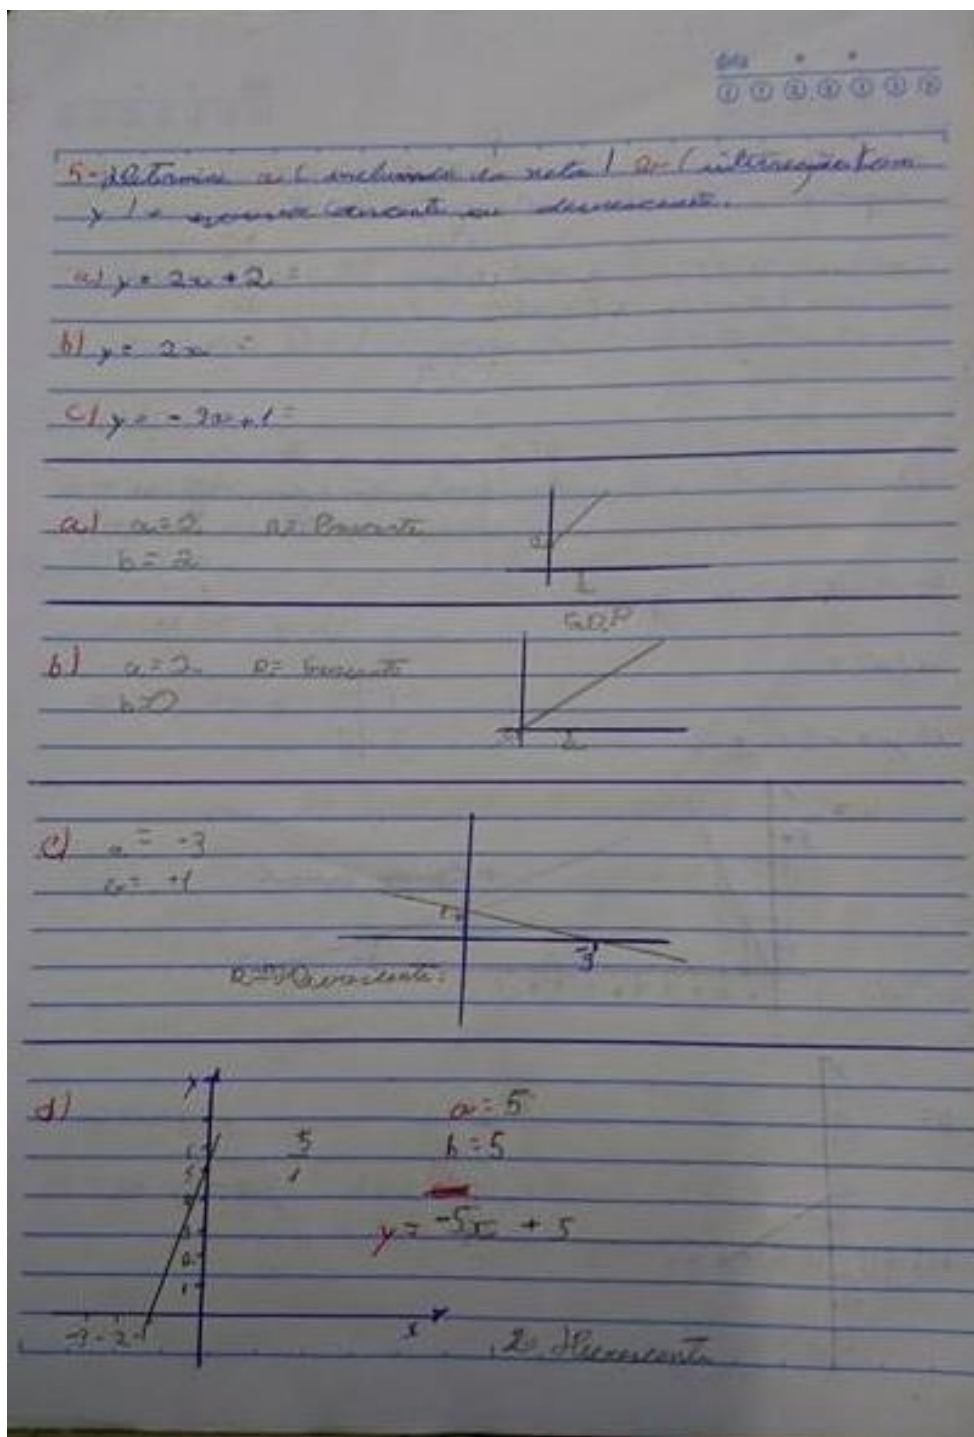 5- Determine a ( inclinação da reta ) e ( interseção com
y ) e crescente ou decrescente.
a) y = 2x + 2 =
b) y = 2x =
c) y = - 3x + 1 =
a) a = 2 R= Crescente
b = 2
b) a = 2 R= Crescente
b = 0
2
c) a = -3
+1
-3
R= Decrescente.
d) y
a = 5
5
b = 5
1
y = -5x + 5
-3 -2 -1 x
Decrescente